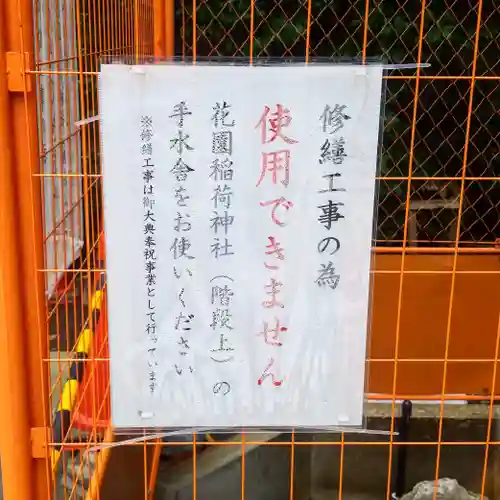 修繕工事の為
使用できません
花園稲荷神社（階段上）の
手水舎をお使いください
※修繕工事は御大典奉祝事業として行っています